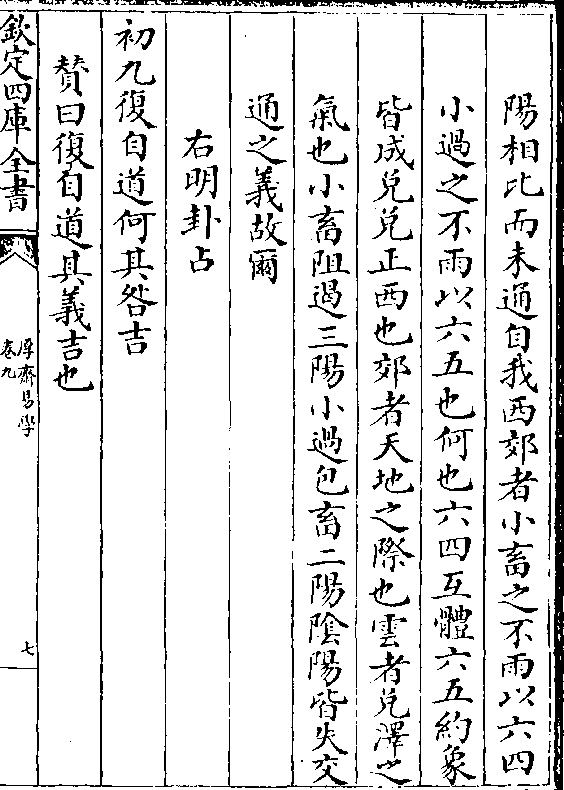 陽相比而未通自我西郊者小畜之不雨以六四
小過之不雨以六五也何也六四互體六五約象
皆成兌兌正西也郊者天地之際也雲者兌澤之
氣也小畜阻遏三陽小過包畜二陽陰陽皆失交
通之義故爾
右明卦占
初九復自道何其咎吉
贊曰復自道其義吉也
欽定四庫全書
厚齋易學
卷九
七